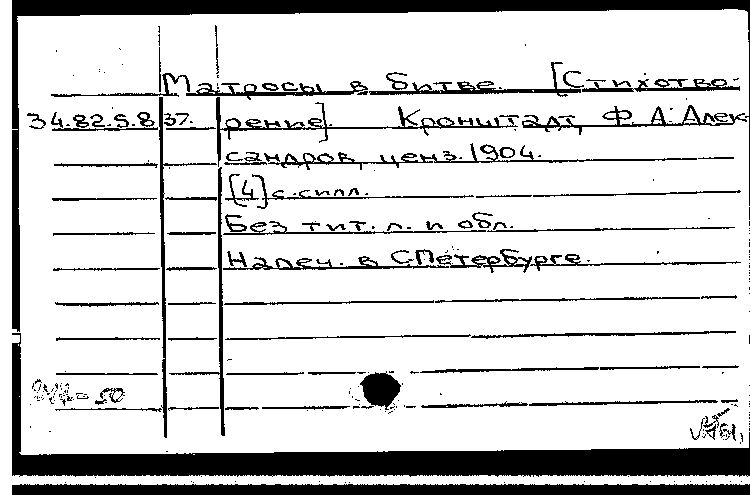 Матросы в битве. [Стихотво-
34.82.5.8 37. рение]. Кронштадт, Ф. А. Алек-
сандров, ценз. 1904.
[4] с. с илл.
Без тит. л. и обл.
Напеч. в С.Петербурге.
50